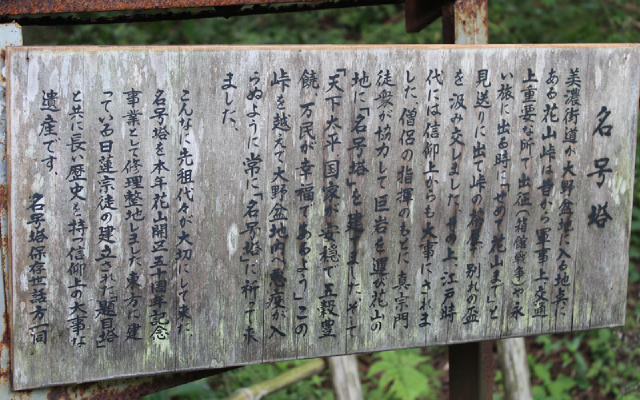 名号塔
美濃街道が大野盆地に入る地点に
ある花山峠は昔から軍事上、交通
上重要な所で出征(箱館戦争)や永
い旅に出る時に「せめて花山まで」と
見送りに出て峠の茶屋で別れの盃
を汲み交しました。その上、江戸時
代には信仰上からも大事にされま
した。僧侶の指揮のもとに、真宗門
徒衆が協力して巨岩を運び花山の
地に「名号塔」を建てました。そして
「天下太平、国家が安穏で五穀豊
饒、万民が幸福であるよう」この
峠を越えて大野盆地内へ悪疫が入
らぬように常に「名号塔」に祈って来
ました。
こんなに先祖代々が大切にして来た
名号塔を本年花山開区五十周年記念
事業として修理整地しました。東方に建
っている日蓮宗徒の建立された「題目塔」
と共に長い歴史を持つ信仰上の大事な
遺産です。
名号塔保存世話方一同